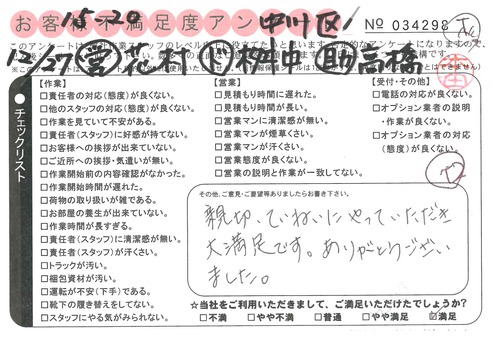 お客様不満足度アン
15-20
中川区
№ 034298
12/27 営 村 柳中 助 高橋
チェックリスト
【作業】
□責任者の対応(態度)が良くない。
□他のスタッフの対応(態度)が良くない。
□作業を見ていて不安がある。
□責任者(スタッフ)に好感が持てない。
□お客様への挨拶が出来ていない。
□ご近所への挨拶・気遣いが無い。
□作業開始前の内容確認がなかった。
□作業開始時間が遅れた。
□荷物の取り扱いが雑である。
□お部屋の養生が出来ていない。
□作業時間が長すぎる。
□責任者(スタッフ)に清潔感が無い。
□責任者(スタッフ)が汗くさい。
□トラックが汚い。
□梱包資材が汚い。
□運転が不安(下手)である。
□靴下の履き替えをしてない。
□スタッフにやる気がみられない。
【営業】
□見積もり時間に遅れた。
□見積もり時間が長い。
□営業マンに清潔感が無い。
□営業マンが煙草くさい。
□営業マンが汗くさい。
□営業態度が良くない。
□営業の説明と作業が一致してない。
【受付・その他】
□電話の対応が良くない。
□オプション業者の説明
・作業が良くない。
□オプション業者の対応
(態度)が良くない。
その他、ご意見・ご要望等ありましたらお書き下さい。
親切、ていねいにやっていただき
大満足です。ありがとうござい
ました。
☆当社をご利用いただきまして、ご満足いただけたでしょうか?
□不満 □やや不満 □普通 □やや満足 ☑満足